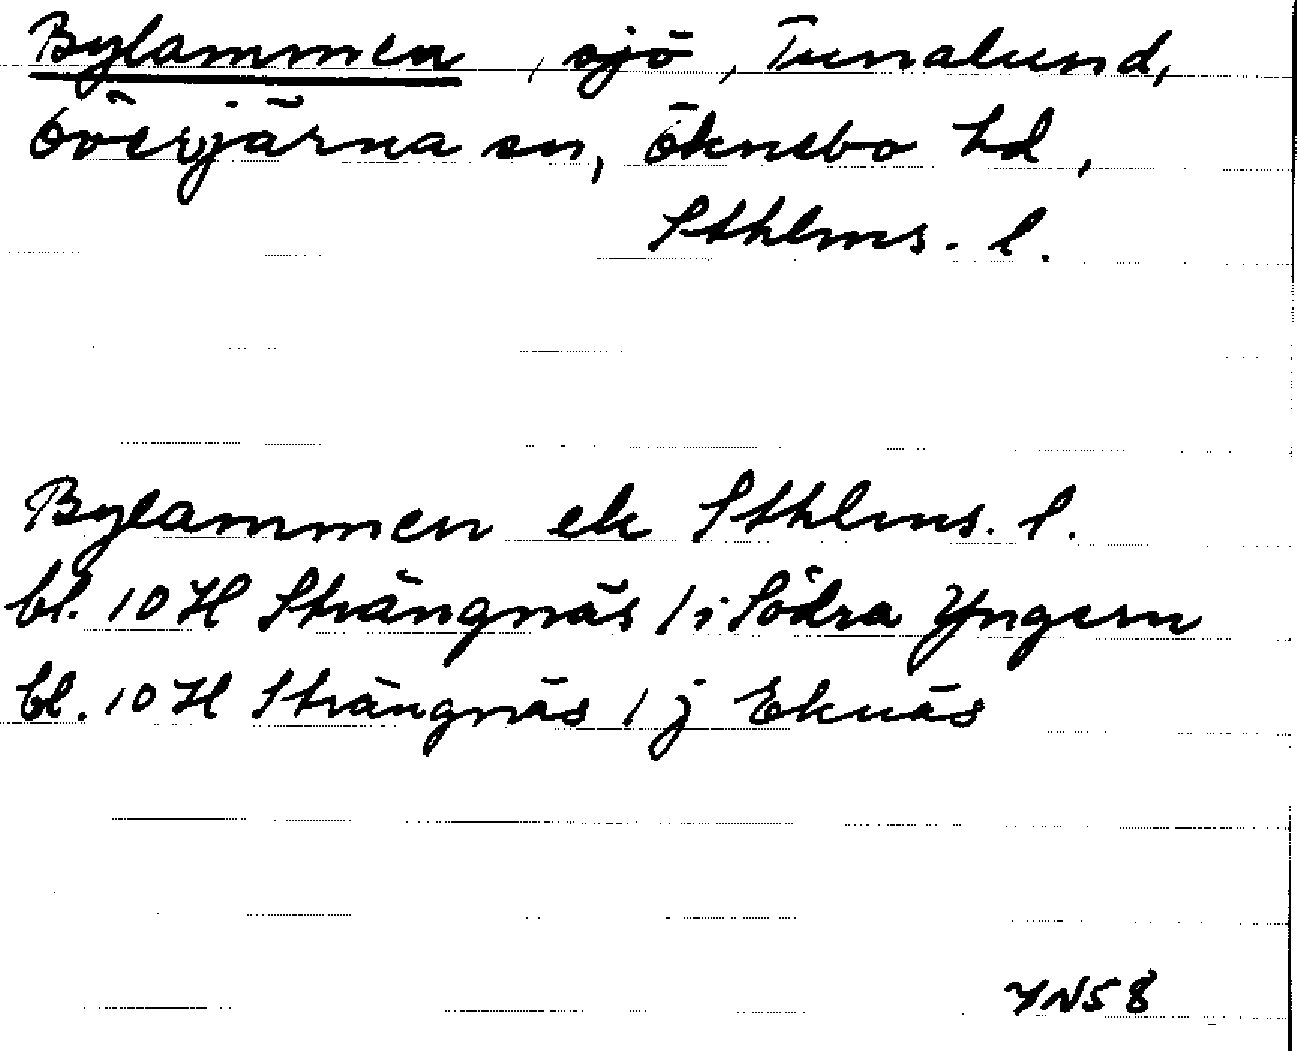 Bylammen, sjö, Tunalund,
Överjärna sn, Öknebo hd,
Sthlms. l.
Bylammen ek Sthlms. l.
bl. 10 H Strängnäs / i Södra Yngern
bl. 10 H Strängnäs / j Eknäs
YN58